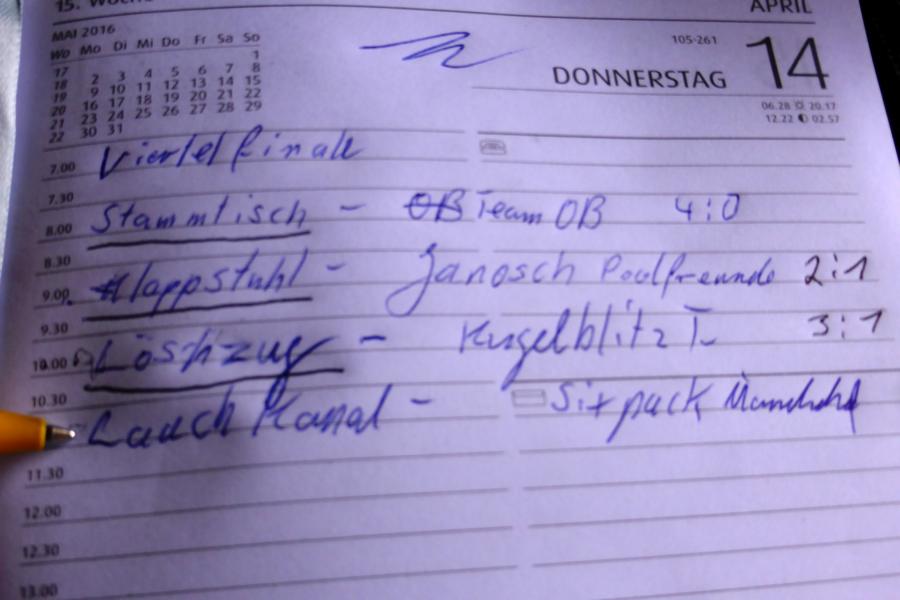 15. Woche
APRIL
MAI 2016
Wo Mo Di Mi Do Fr Sa So
17 1
18 2 3 4 5 6 7 8
19 9 10 11 12 13 14 15
20 16 17 18 19 20 21 22
21 23 24 25 26 27 28 29
22 30 31
105-261
DONNERSTAG 14
06.28 20.17
12.22 02.57
7.00 Viertelfinale
7.30
8.00 Stammtisch - OB Team OB 4:0
8.30
9.00 Klappstuhl - Janosch Poolfreunde 2:1
9.30
10.00 Löschzug - Kugelblitz I 3:1
10.30
Lauch Kanal - Sixpack
11.30
12.00
12.30
13.00